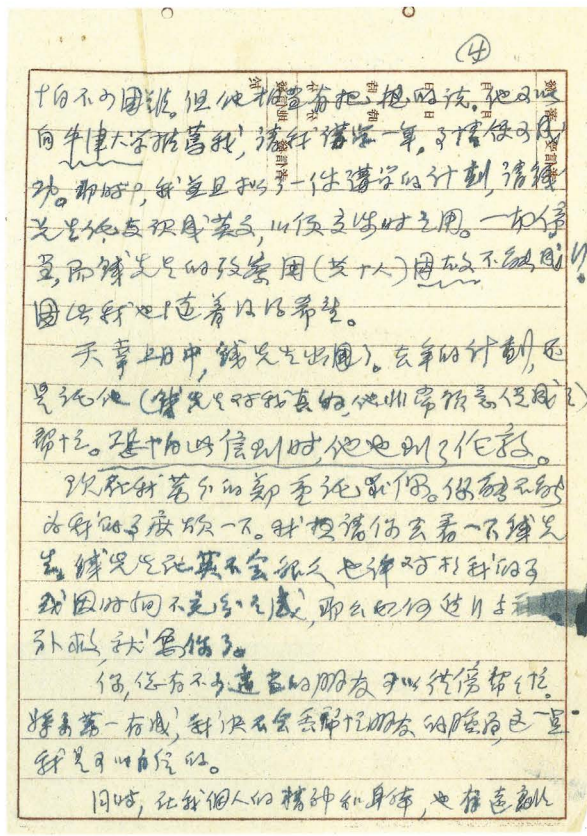 ④
怕不少困难。但他相当有把握的说。他可以
向牛津大学推荐我，请我讲学一年，事情便可成
功。那时，我并且拟了一件讲学的计划，请钱
先生代我译成英文，以便交涉时之用。一切停
当，而钱先生的考察团（共十人）因故不能成行！
因此我也随着没得希望。
天幸上月中，钱先生出国了。去年的计划，还
是托他（钱先生对我真好，他非常愿意促成）
帮忙。恐怕此信到时，他也到了伦敦。
现在我万分的郑重托求你。你能不能
为我的事麻烦一下。我想请你去看一下钱先
生，钱先生在英不会很久，也许对于我的事
或因时间不充分之感，那么如何进行与
补救，就写你了。
你，总有不少适当的朋友可以从傍帮忙。
好事万一有成，我决不会丢帮忙朋友的脸面，这一点
我是可以自信的。
同时，在我个人的精神和身体，也有远离